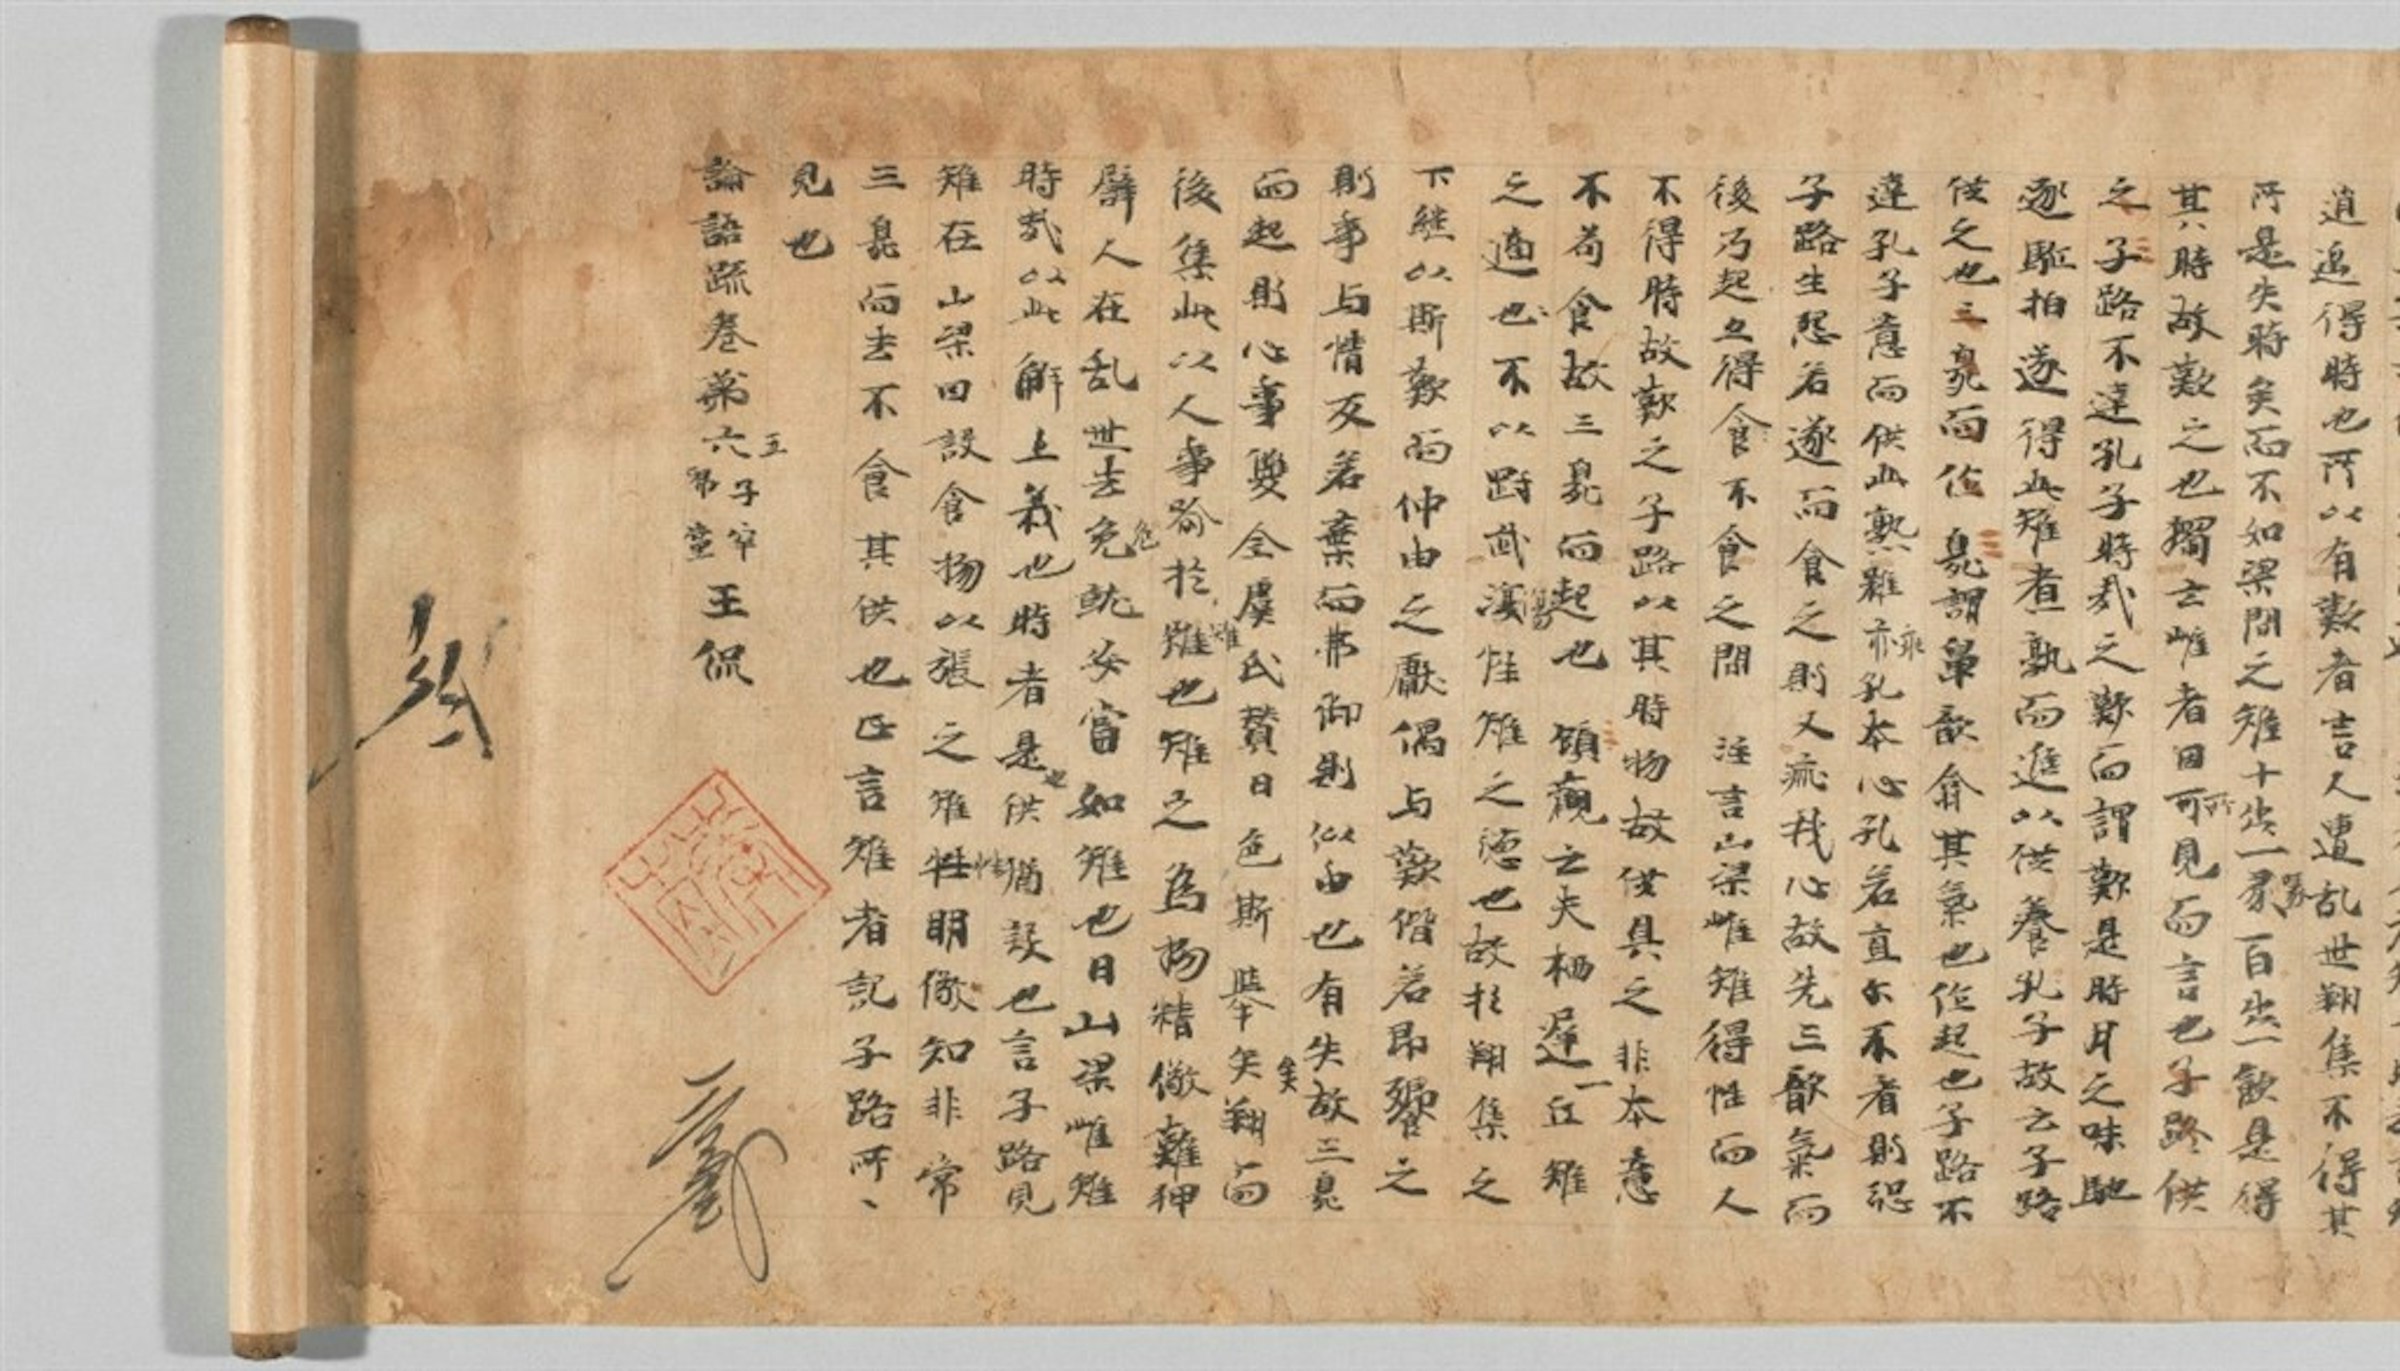 逍遥得時也所以有歎者言人遭乱世翔集不得其
所是失時矣而不如梁間之雉十步一啄百步一飲是得
其時故歎之也獨云雌者因所見而言也子路供
之子路不達孔子時哉之歎而謂歎是時月之味馳
逐駈拍遂得此雉煮熟而進以供養孔子故云子路
供之也三臭而作臭謂鼻歆翕其氣也作起也子路不
達孔子意而供此熟雉乖孔本心孔若直尓不者則恐
子路生怨若遂而食之則又乖我心故先三歆氣而
後乃起立得食不食之間 注言山梁雌雉得性而人
不得時故歎之子路以其時物故供具之非本意
不苟食故三臭而起也 顧觀云夫栖遅一丘雉
之適也不以剛武傷性雉之德也故於翔集之
下継以斯歎而仲由之獻偶与歎偕若即饗之
則事与情反若棄而弗御則似由也有失故三臭
而起則心事雙全虞氏贊曰色斯舉矣翔而
後集此以人事喻於雉也雉之爲物精儆難狎
譬人在乱世去危就安當如雉也曰山梁雌雉
時哉以此解上義也時者是供猶設也言子路見
雉在山梁因設食物以張之雉性明儆知非常
三臭而去不食其供也正言雉者記子路所、
見也
論語疏卷第六 五 子罕 郷黨 王侃